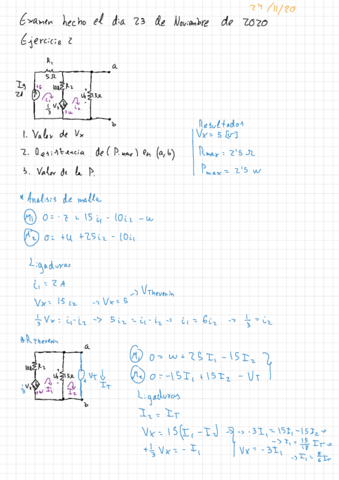 24/11/20
Examen hecho el dia 23 de Noviembre de 2020
Ejercicio 2
a
R₁
5Ω
R₂
15Ω
b
1. Valor de Vx
2. Resistencia de (Pmax) en (a,b)
3. Valor de la P.
Resultados
Vx = 5 [V]
Rmax = 2'5 Ω
Pmax = 2'5 w
* Analisis de malla
M₁ 0 = -z + 15i₁ - 10i₂ - u
M₂ 0 = +u + 25i₂ - 10i₁
Ligaduras
i₁ = 2A
Vx = 15i₂ → Vx = 5 → VThevenin
1/3 Vx = i₁ - i₂ → 5i₂ = i₁ - i₂ → i₁ = 6i₂ → 1/3 = i₂
* RThevenin
a
R₂
15Ω
VT
IT
b
M₁ 0 = u + 25I₁ - 15I₂
M₂ 0 = -15I₁ + 15I₂ - VT
Ligaduras
I₂ = IT
Vx = 15(I₁ - I₂) → -3I₁ = 15I₁ - 15I₂ →
→ I₁ = 15/18 IT →
+1/3 Vx = -I₁
Vx = -3I₁